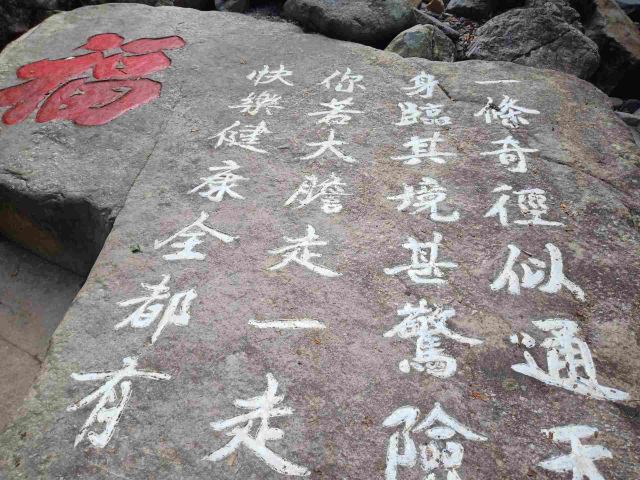 一條奇徑似通天
身臨其境甚驚險
你若大膽走一走
快樂健康全都有
福